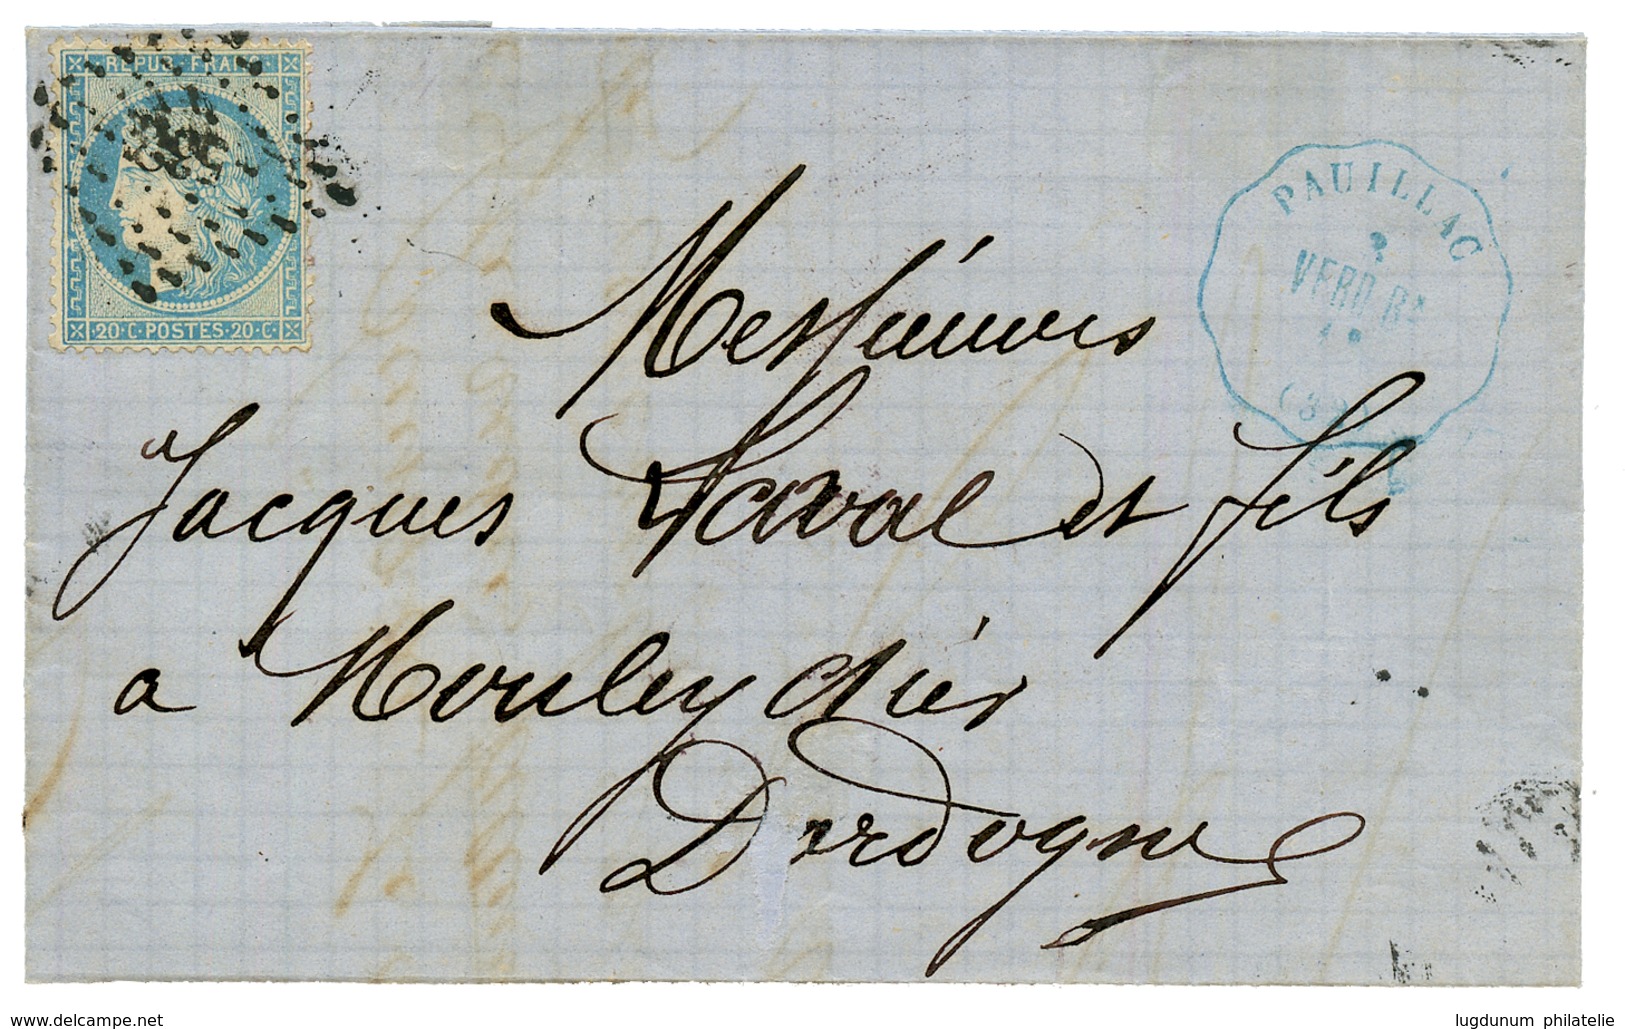 REPUB FRANC
20·C·POSTES·20·C·
PAUILLAC
VERD. Bx
Messieurs
Jacques Laval et fils
a Mouleydier
Dordogne
delcampe.net
lugdunum philatelie